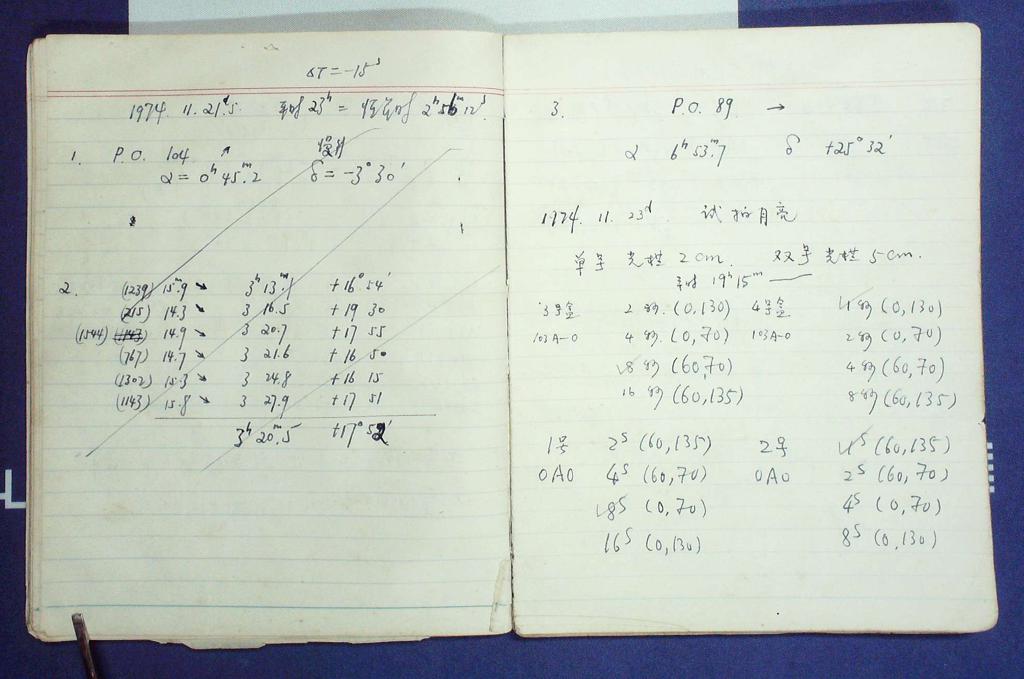 ΔT = -15ˢ
1974. 11. 21ᵈ.5 平时 23ʰ = 恒星时 2ʰ 56ᵐ 12ˢ
1. P.O. 104 ↗
α = 0ʰ 45ᵐ.2 δ = -3° 30′
2. (1239) 15ᵐ.9 ↘ 3ʰ 13ᵐ.1 +16° 54′
(215) 14.3 ↘ 3 16.5 +19 30
(1544) 14.9 ↘ 3 20.7 +17 55
(767) 14.7 ↘ 3 21.6 +16 50
(1302) 15.3 ↘ 3 24.8 +16 15
(1143) 15.8 ↘ 3 27.9 +17 51
3ʰ 20ᵐ.5 +17° 52′
3. P.O. 89 →
α 6ʰ 53ᵐ.7 δ +25° 32′
1974. 11. 23ᵈ 试拍月亮
单号光栏 2cm. 双号光栏 5cm.
平时 19ʰ 15ᵐ
3号盒 2秒 (0,130) 4号盒 1秒 (0,130)
103A-0 4秒 (0,70) 103A-0 2秒 (0,70)
8秒 (60,70) 4秒 (60,70)
16秒 (60,135) 8秒 (60,135)
1号 2ˢ (60,135) 2号 1ˢ (60,135)
0A0 4ˢ (60,70) 0A0 2ˢ (60,70)
8ˢ (0,70) 4ˢ (0,70)
16ˢ (0,130) 8ˢ (0,130)